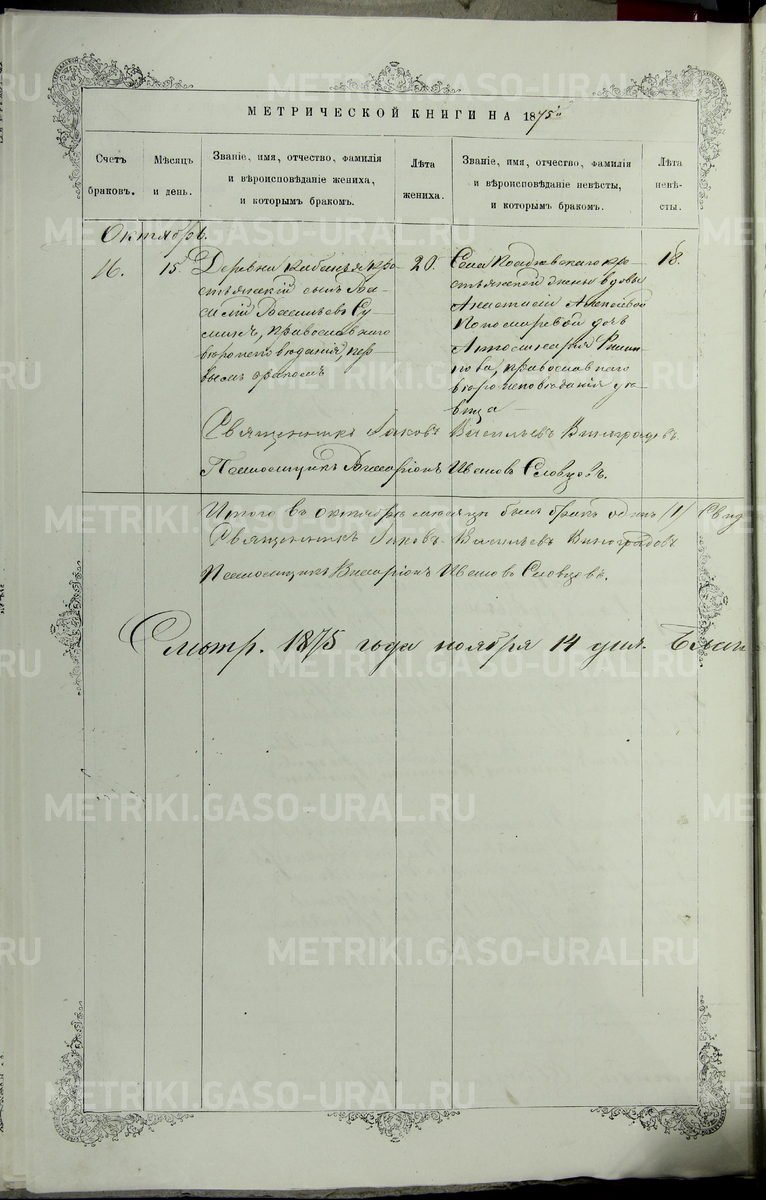 МЕТРИЧЕСКОЙ КНИГИ НА 1875й
Счетъ браковъ.
Мѣсяцъ и день.
Званіе, имя, отчество, фамилія и вѣроисповѣданіе жениха, и которымъ бракомъ.
Лѣта жениха.
Званіе, имя, отчество, фамилія и вѣроисповѣданіе невѣсты, и которымъ бракомъ.
Лѣта невѣ-сты.
Октябрь.
16.
15.
Деревни Кабаньей кре-
стьянскій сынъ Ва-
силій Васильевъ Су-
minъ, православнаго
вѣроисповѣданія, пер-
вымъ бракомъ
20.
Села кре-
стьянской жены вдовы
Анастасіи
Пономаревой дочь
Филип-
пова, православнаго
вѣроисповѣданія дѣ-
вица
18.
Священникъ Іаковъ Васильевъ Виноградовъ.
Псаломщикъ Виссаріонъ Ивановъ Словцовъ.
Итого въ октябрѣ мѣсяцѣ былъ бракъ одинъ /1/ Свид
Священникъ Іаковъ Васильевъ Виноградовъ
Псаломщикъ Виссаріонъ Ивановъ Словцовъ.
Смотр. 1875 года ноября 14 дня. Благ
METRIKI.GASO-URAL.RU